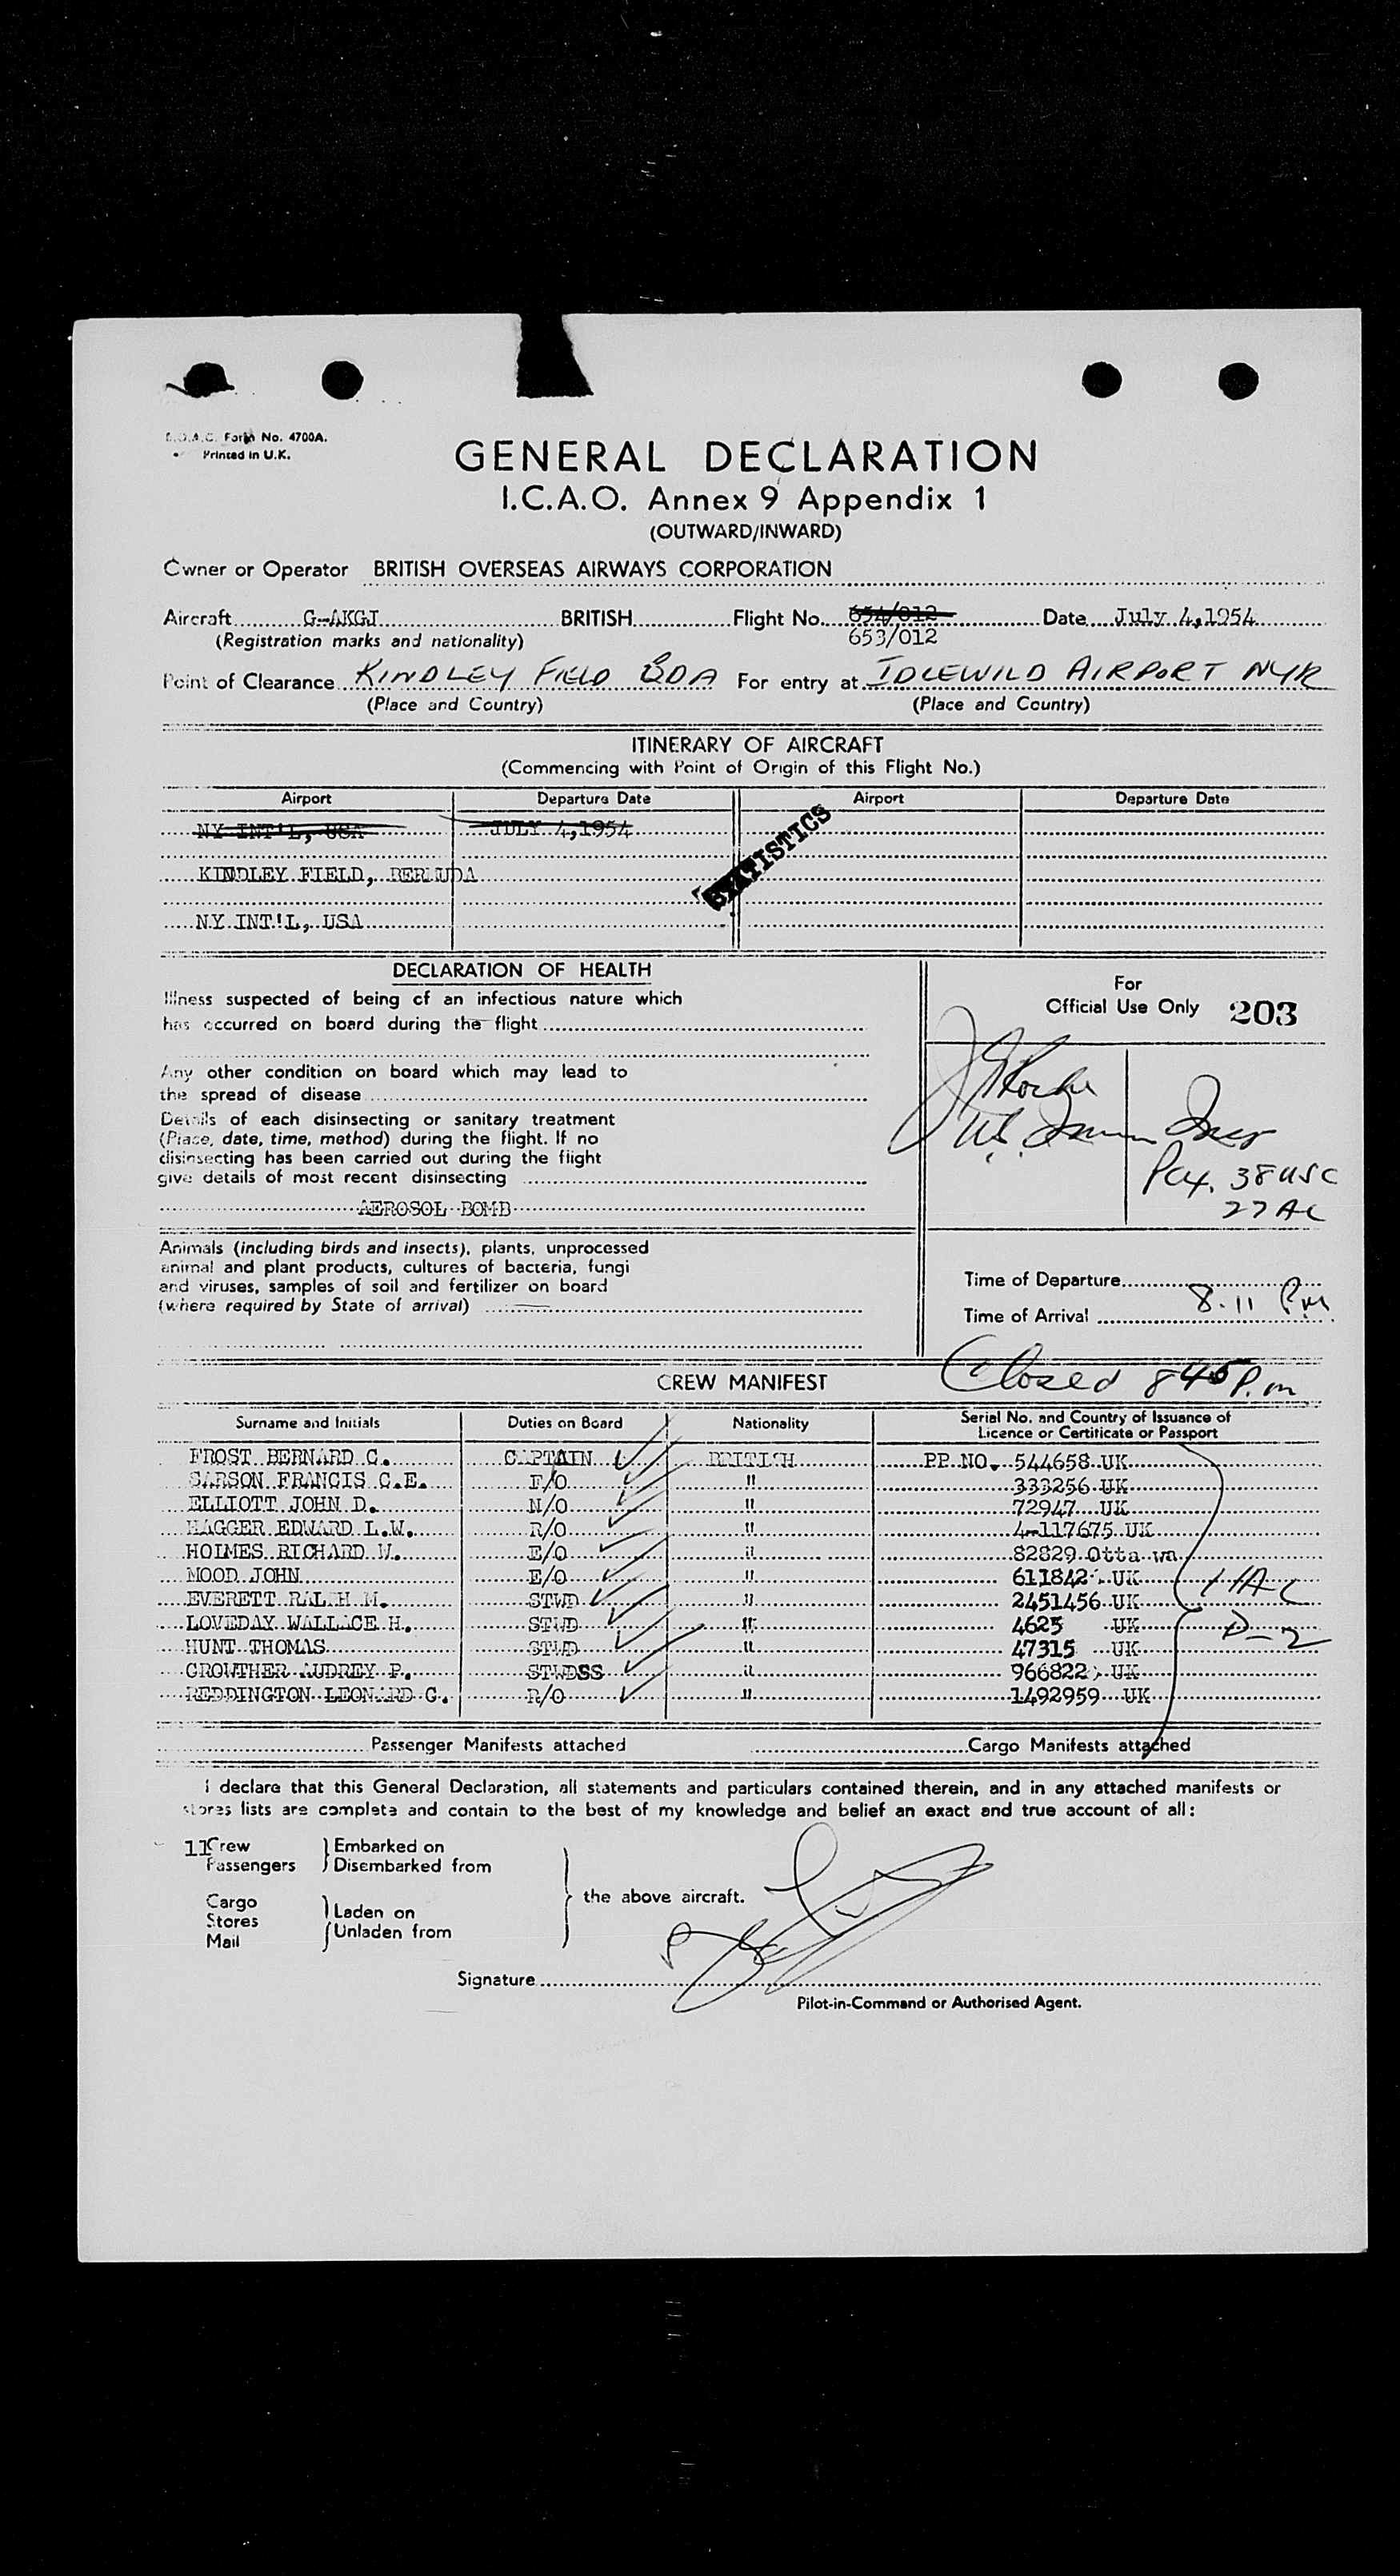 B.O.A.C. Form No. 4700A.
Printed in U.K.
GENERAL DECLARATION
I.C.A.O. Annex 9 Appendix 1
(OUTWARD/INWARD)
Owner or Operator BRITISH OVERSEAS AIRWAYS CORPORATION
Aircraft G-AKGJ BRITISH Flight No. 654/012 Date July 4, 1954
(Registration marks and nationality) 653/012
Point of Clearance KINDLEY FIELD BDA For entry at IDLEWILD AIRPORT NYK
(Place and Country) (Place and Country)
ITINERARY OF AIRCRAFT
(Commencing with Point of Origin of this Flight No.)
Airport Departure Date Airport Departure Date
NY INT'L, USA JULY 4,1954
STATISTICS
KINDLEY FIELD, BERMUDA
NY INT'L, USA
DECLARATION OF HEALTH
Illness suspected of being of an infectious nature which
has occurred on board during the flight
Any other condition on board which may lead to
the spread of disease
Details of each disinsecting or sanitary treatment
(Place, date, time, method) during the flight. If no
disinsecting has been carried out during the flight
give details of most recent disinsecting
AEROSOL BOMB
Animals (including birds and insects), plants, unprocessed
animal and plant products, cultures of bacteria, fungi
and viruses, samples of soil and fertilizer on board
(where required by State of arrival)
For
Official Use Only 203
Pax. 38 USC
27 AC
Time of Departure
Time of Arrival 8.11 PM
Closed 845 P.m
CREW MANIFEST
Surname and Initials Duties on Board Nationality Serial No. and Country of Issuance of
Licence or Certificate or Passport
FROST BERNARD C. CAPTAIN BRITISH PP NO. 544658 UK
SARSON FRANCIS C.E. F/O " 333256 UK
ELLIOTT JOHN D. N/O " 72947 UK
HAGGER EDWARD L.W. R/O " 4-117675 UK
HOLMES RICHARD W. E/O " 82829 Ottawa
MOOD JOHN E/O " 611842 UK
EVERETT RALPH M. STWD " 2451456 UK 11AC
LOVEDAY WALLACE H. STWD " 4625 UK D-2
HUNT THOMAS STWD " 47315 UK
CROWTHER AUDREY P. STWDSS " 966822 UK
REDDINGTON LEONARD G. R/O " 1492959 UK
Passenger Manifests attached Cargo Manifests attached
I declare that this General Declaration, all statements and particulars contained therein, and in any attached manifests or
stores lists are complete and contain to the best of my knowledge and belief an exact and true account of all:
11 Crew Embarked on
Passengers Disembarked from
the above aircraft.
Cargo Laden on
Stores
Unladen from
Mail
Signature
Pilot-in-Command or Authorised Agent.